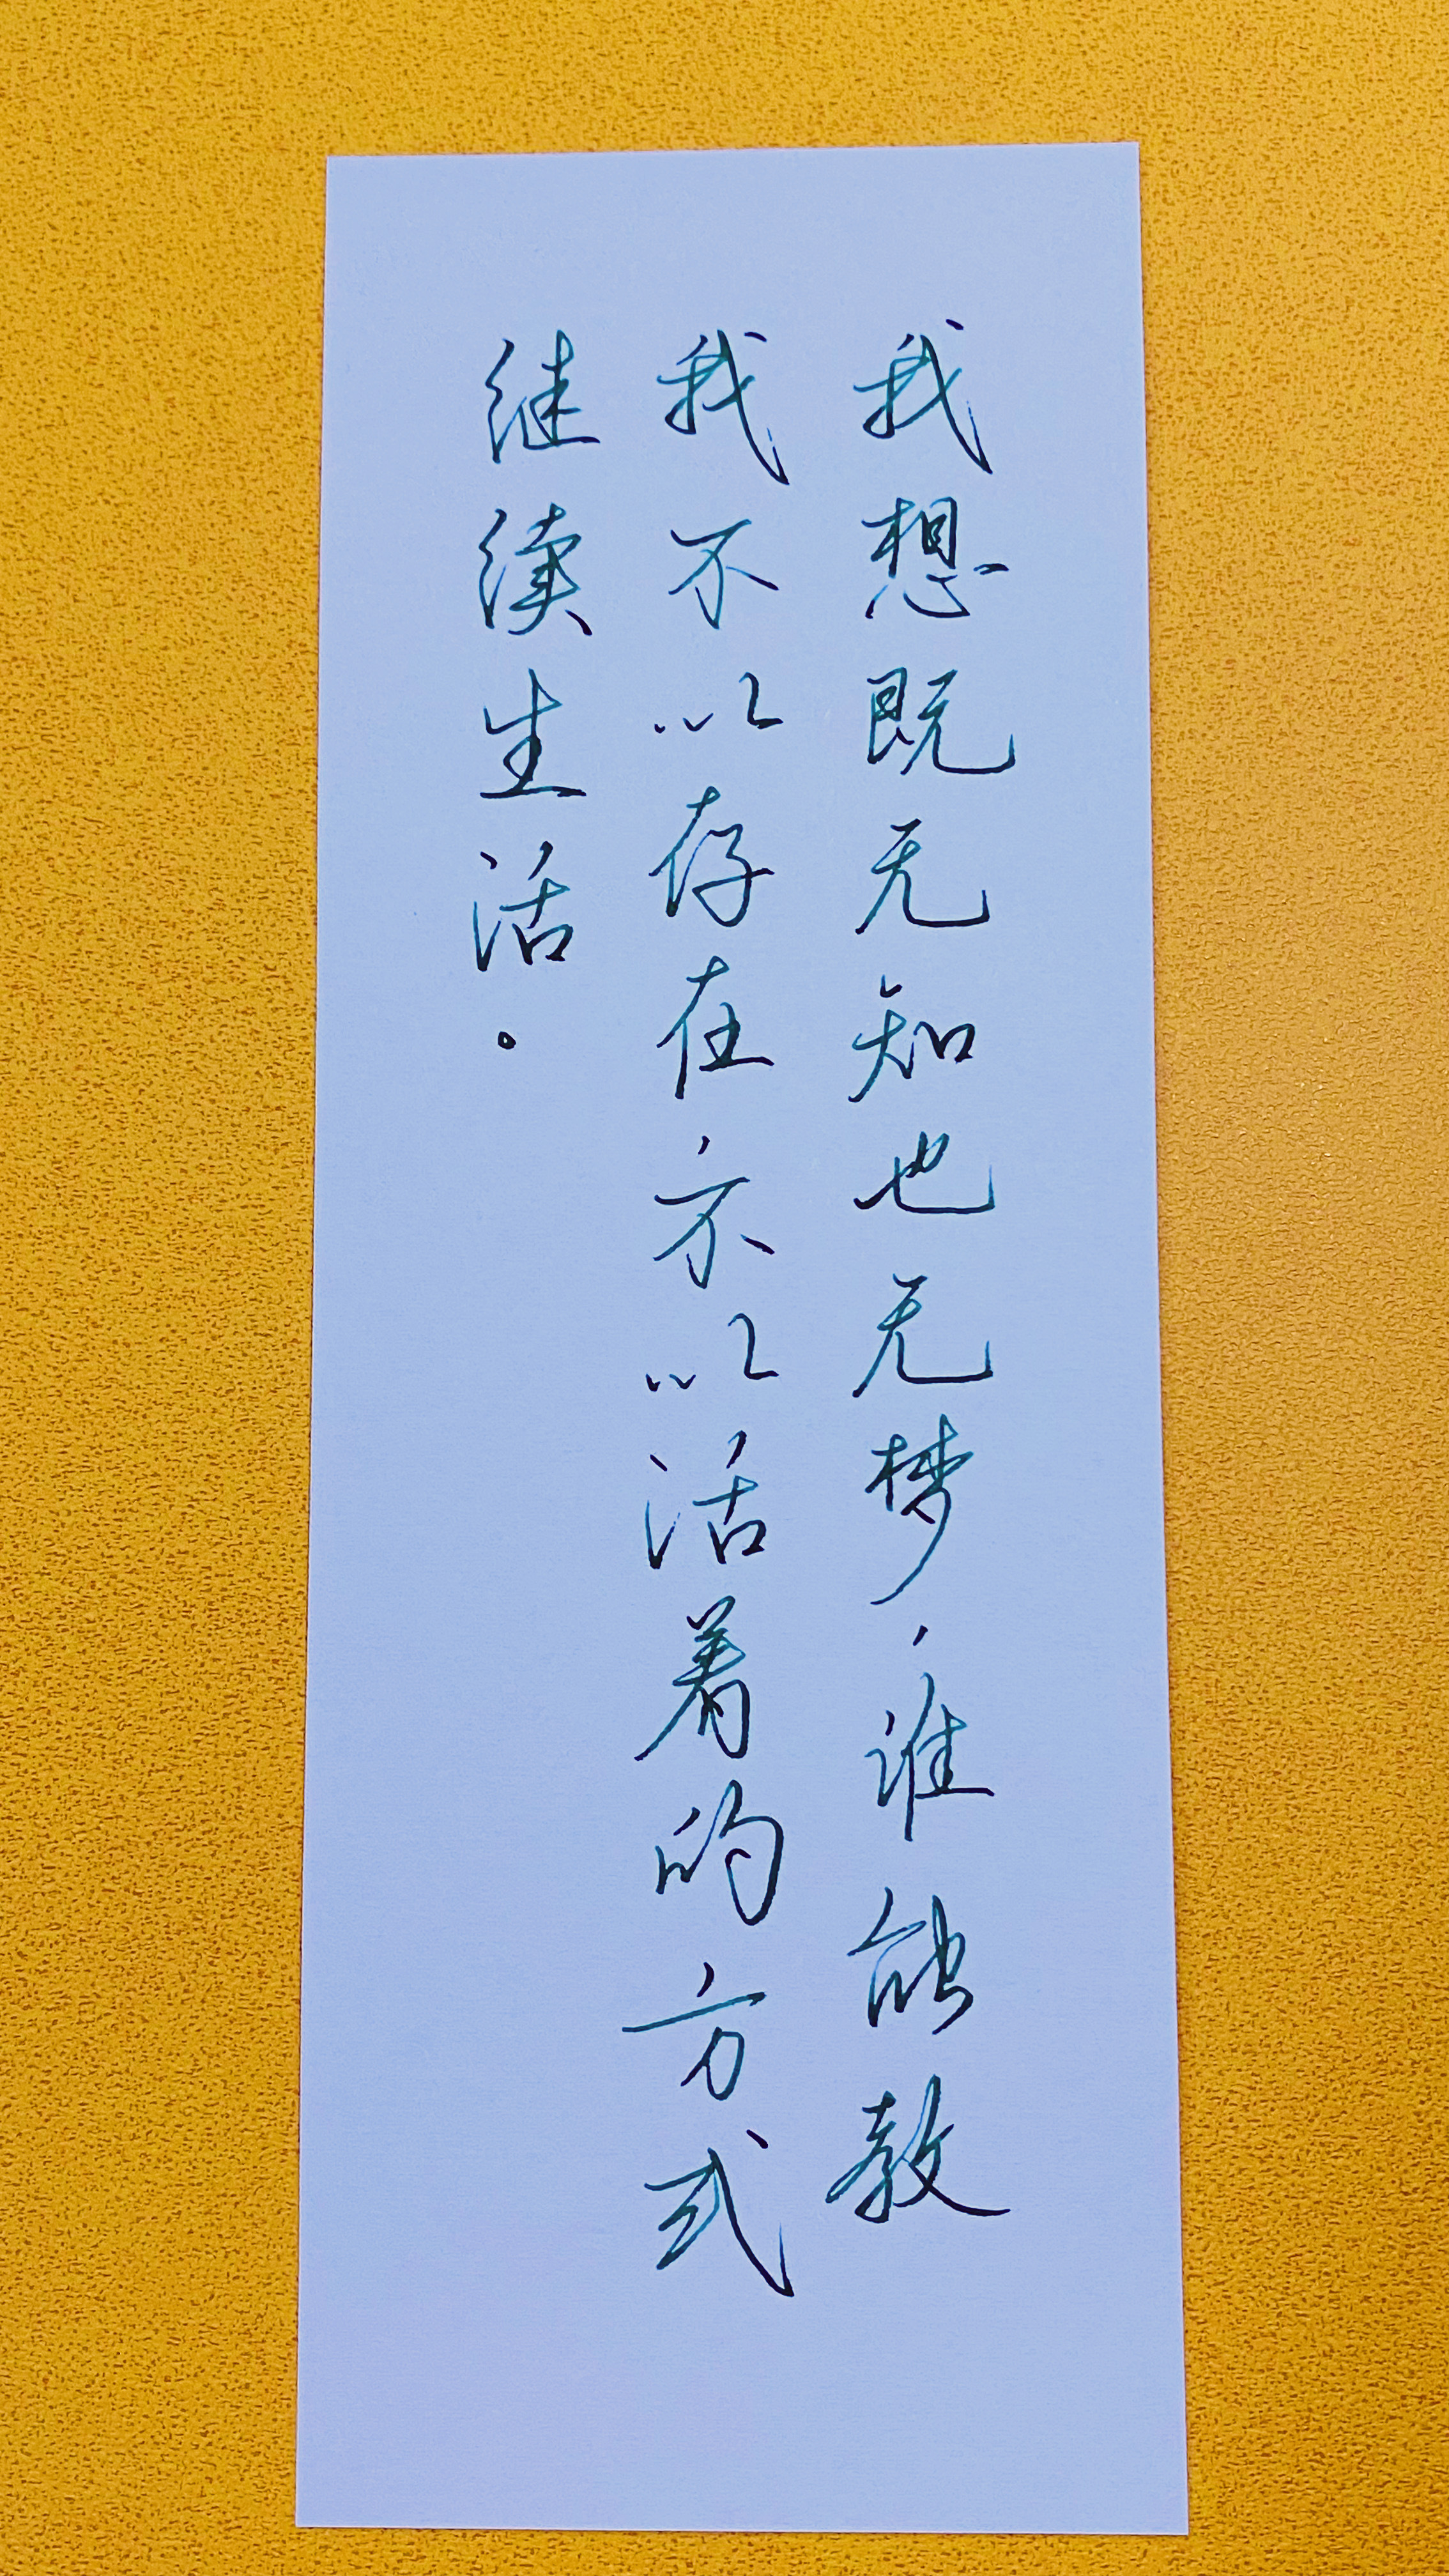 我想既无知也无梦，谁能教
我不以存在，不以活着的方式
继续生活。